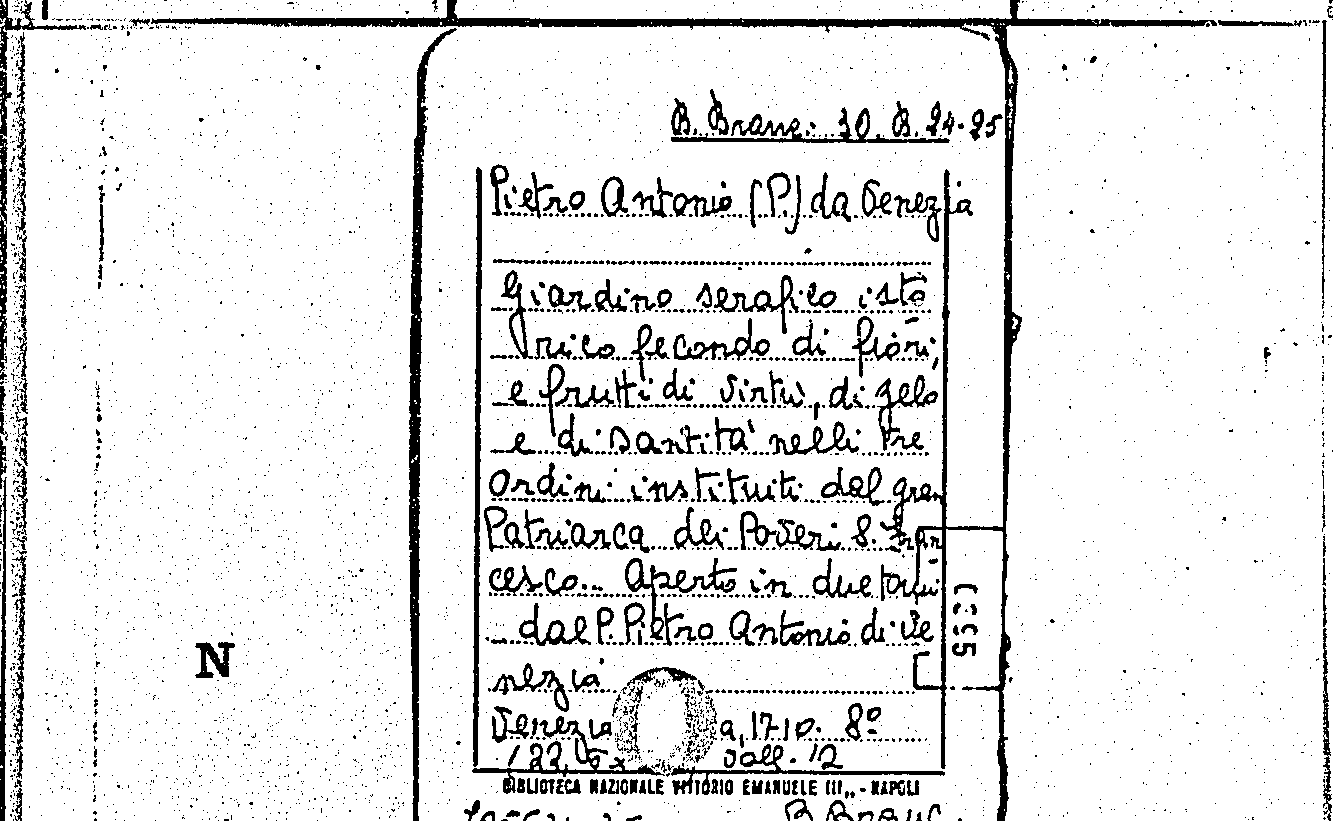 B. Branc. 30. B. 24-25
Pietro Antonio (P.) da Venezia
Giardino serafico isto
rico fecondo di fiori,
e frutti di virtù, di zelo
e di santità nelli tre
Ordini instituiti dal gran
Patriarca dei Poveri S. Fran
cesco... Aperto in due tomi
dal P. Pietro Antonio di Ve
nezia
Venezia a, 1710. 8º
Vall. 12
BIBLIOTECA NAZIONALE VITTORIO EMANUELE III,, - NAPOLI
B. Branc.
N